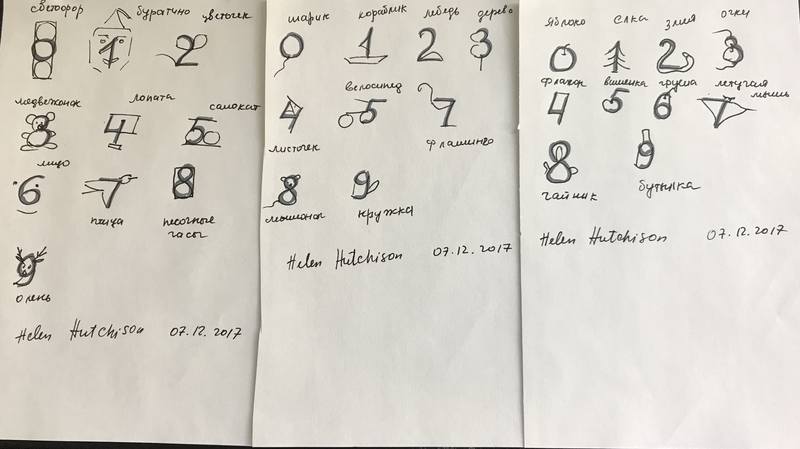 светофор
буратино
цветочек
0
1
2
медвежонок
лопата
самокат
3
4
5
лицо
6
7
8
птица
песочные
часы
9
олень
Helen Hutchison 07.12.2017
шарик
кораблик
лебедь
дерево
0
1
2
3
велосипед
4
5
7
листочек
фламинго
8
9
мышонок
кружка
Helen Hutchison 07.12.2017
яблоко
елка
змея
очки
0
1
2
3
флакон
вишенка
груша
летучая
мышь
4
5
6
7
8
9
чайник
бутылка
Helen Hutchison 07.12.2017